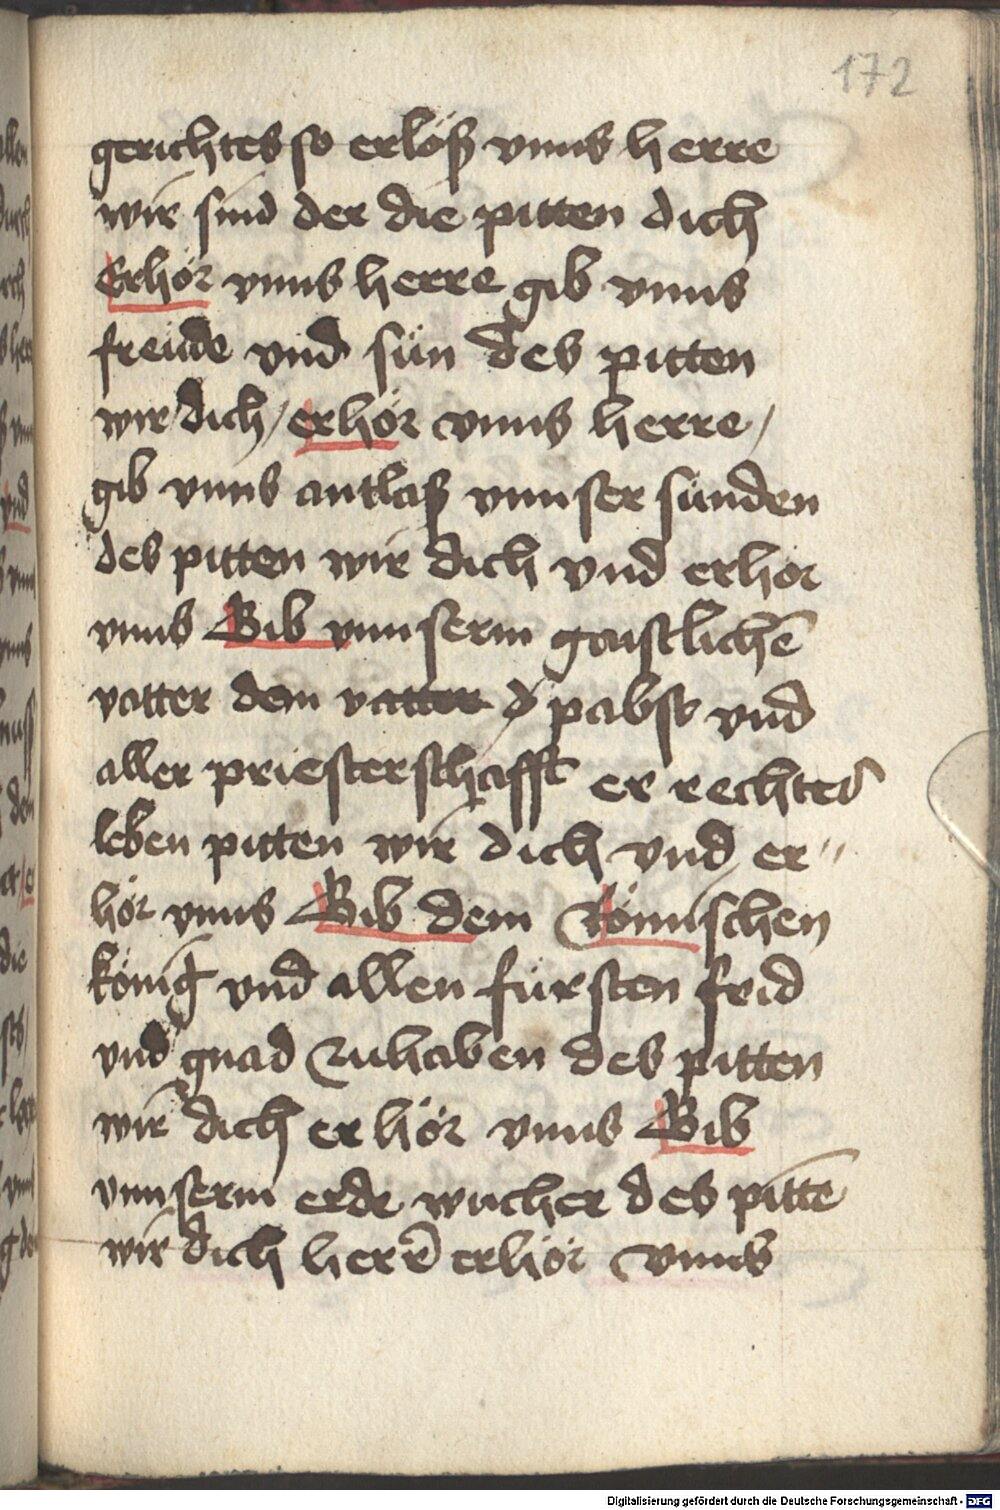 172
gerichtes so erlöß vnns herre
wir sind der die pitten dich
Erhör vnns herre gib vnns
freude vnd sün des pitten
wir dich / erhör vnns herre /
gib vnns antlaß vnnser sünden
des pitten wir dich vnd erhör
vnns Gib vnnserm gaistlichē
vatter dem vatter d pabst vnd
aller priesterschafft er rechter
leben pitten wir dich vnd er〃
hör vnns Gib dem Römischen
könig vnd allen fürsten frid
vnd gnad zuhaben des pitten
wir dich erhör vnns Gib
vnnserm erde wucher des pittē
wir dich herr̄ erhör vnns
Digitalisierung gefördert durch die Deutsche Forschungsgemeinschaft - DFG